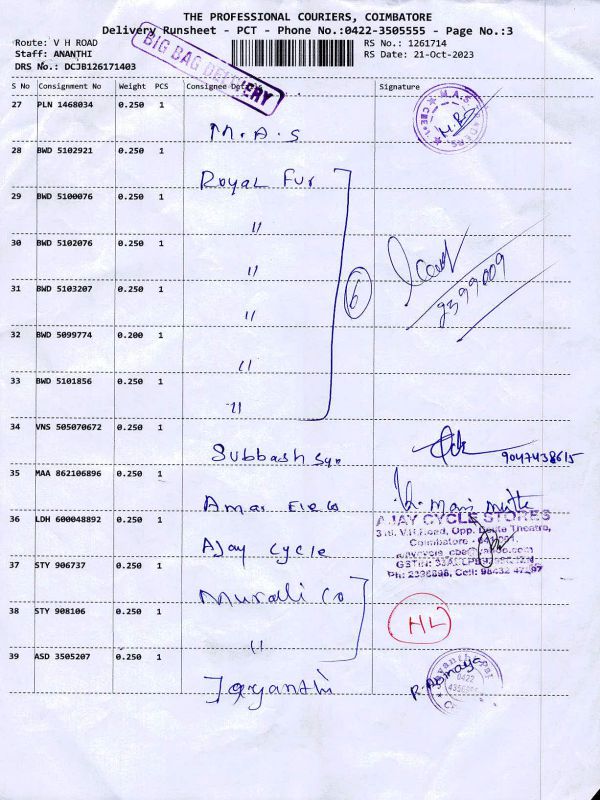 THE PROFESSIONAL COURIERS, COIMBATORE
Delivery Runsheet - PCT - Phone No.:0422-3505555 - Page No.:3
Route: V H ROAD
Staff: ANANTHI
DRS No.: DCJB126171403
RS No.: 1261714
RS Date: 21-Oct-2023
BIG BAG DELIVERY
S No Consignment No Weight PCS Consignee Details Signature
27 PLN 1468034 0.250 1
M.A.S
M.A.S
28 BWD 5102921 0.250 1
Royal Fur
29 BWD 5100076 0.250 1
"
30 BWD 5102076 0.250 1
"
31 BWD 5103207 0.250 1
"
6
32 BWD 5099774 0.200 1
"
33 BWD 5101856 0.250 1
"
34 VNS 505070672 0.250 1
Subbash
9047438615
35 MAA 862106896 0.250 1
Amar
36 LDH 600048892 0.250 1
Ajay Cycle
AJAY CYCLE STORES
V.H.Road, Opp. Theatre,
Coimbatore
37 STY 906737 0.250 1
Murali Co
38 STY 908106 0.250 1
"
HL
39 ASD 3505207 0.250 1
Jayanthi
0422